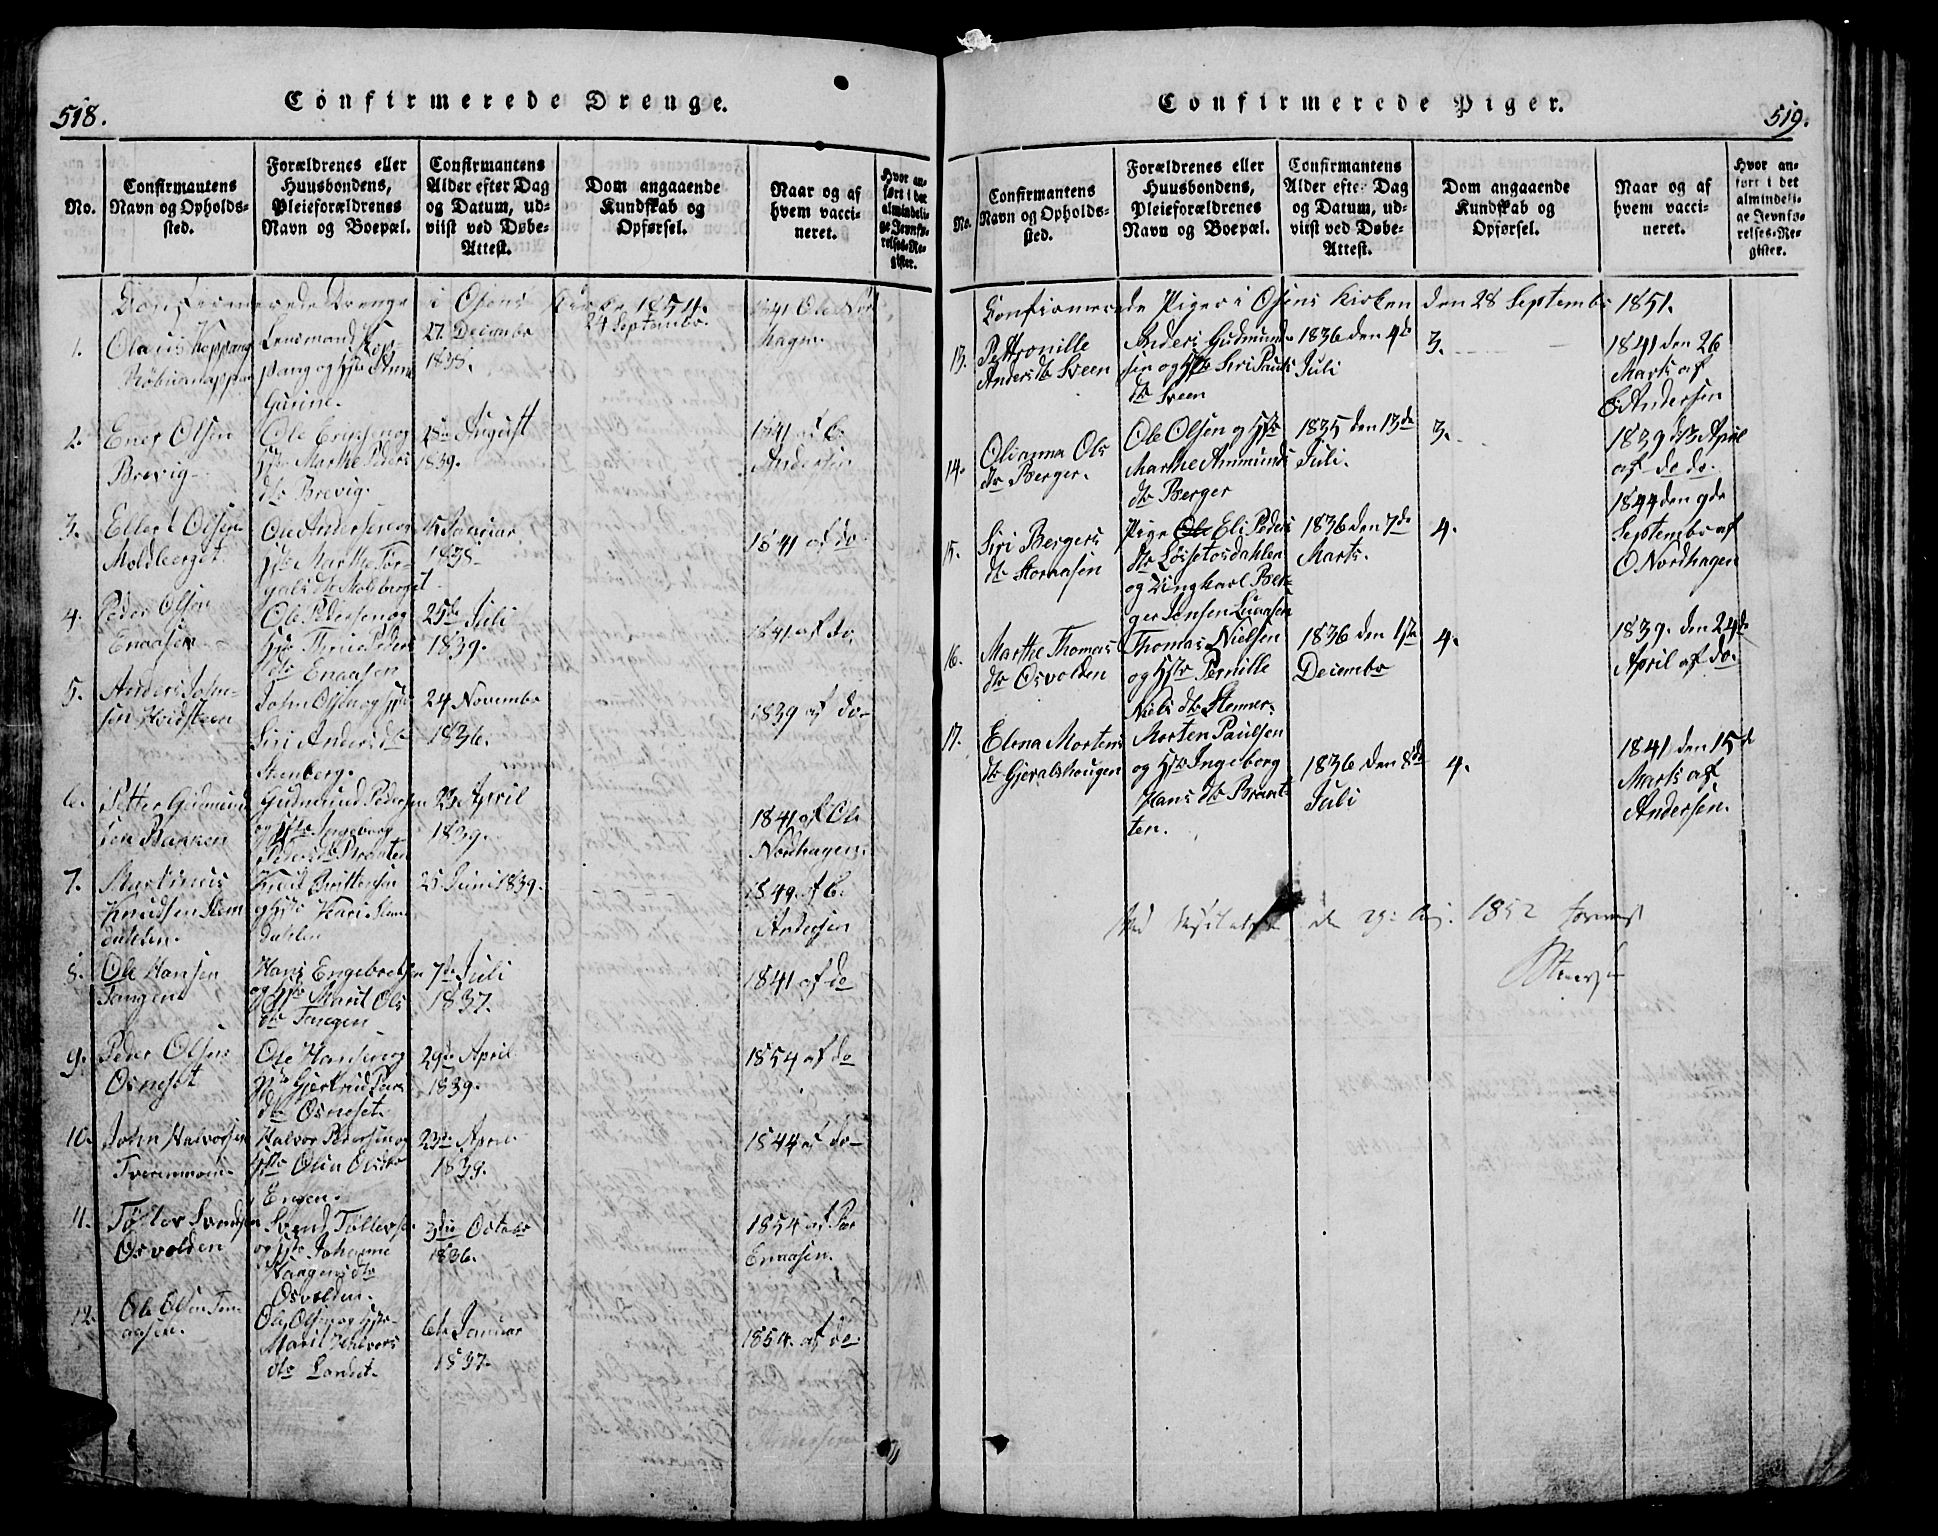 518.
Confirmerede Drenge.
No.
Confirmantens
Navn og Opholds-
sted.
Forældrenes eller
Huusbondens,
Pleieforældrenes
Navn og Boepæl.
Confirmantens
Alder efter Dag
og Datum, ud-
viist ved Døbe-
Attest.
Dom angaaende
Kundskab og
Opførsel.
Naar og af
hvem vacci-
neret.
Hvor an-
ført i det
almindeli-
ge Jevnfø-
relses-Re-
gister.
Confirmerede Drenge i Osens Kirke 1854.
24 Septembr.
1.
Olaus Koppang
Lensmand Kop-
pang og Hst Anne
Gurine.
27 Decembr
1838.
1841 Ole Nor
hagen.
2.
Ener Olsen
Brevig
Ole Ericsen og
Hst Marthe Peders
dtr Brevig.
18de August
1839.
1841 af E.
Andersen
3.
Ellert Olsen
Moldberget
Ole Andersen og
Hst Marthe Tor-
gals dtr Moldberget
15 Januar
1838
1841 af do
4.
Peder Olsen
Enaasen
Ole Pedersen og
Hst Peders
dtr Enaasen
25de Juli
1839.
1841 af do.
5.
Anders John-
sen
John Olsen og Hst
Siri Anders dtr
Stenberg.
24 Novembr
1836.
1839 af do
6.
Petter Gudmund
sen Bakken
Gudmund Pedersen
og Hst Ingeborg
Peders dtr Braaten
23 April
1839.
1841 af Ole
Nordhagen.
7.
Martinius
Knudsen Stem
dahlen.
og Hst Kari Stem
dahlen
25 Juni 1839.
1849 af E.
Andersen
8.
Ole Hansen
Tangen
Hans Engebretsen
og Hst Marit Ols
dtr Tangen
7de Juli
1837.
1841 af do
9.
Peder Olsen
Osneset
Ole Hansen og
Hst Gjertrud Pers
dtr Osneset.
29de April
1839.
1854 af do
10.
John Halvorsen
Tverenmoen
Halvor Pedersen og
Hst Olia Olsdtr
Engen.
23de April
1839.
1844 af do
11.
Tøllev Svendsen
Osvolden
Svend Tøllevsen
og Hst Johanne
Haagens dtr
Osvolden.
3die Octobr
1836.
1854 af Per
Enaasen.
12.
Ole Olsen Fem-
aasen.
Ole Olsen og Hst
Marit Halvors
dtr Landet.
6te Januar
1837.
1854 af do
519.
Confirmerede Piger.
No.
Confirmantens
Navn og Opholds-
sted.
Forældrenes eller
Huusbondens,
Pleieforældrenes
Navn og Boepæl.
Confirmantens
Alder efter Dag
og Datum, ud-
viist ved Døbe-
Attest.
Dom angaaende
Kundskab og
Opførsel.
Naar og af
hvem vacci-
neret.
Hvor an-
ført i det
almindeli-
ge Jevnfø-
relses-Re-
gister.
Confirmerede Piger i Osens Kirken den 28 Septembr 1851.
13.
Pettronille
Anders dtr Sveen
Anders Gudmund-
sen og Hst Siri Pauls
dtr Sveen
1836 den 4de
Juli
3.
1841 den 26
Marts af
E. Andersen
14.
Olianna Ols
dtr Berger.
Ole Olsen og Hst
Marthe Ammunds
dtr Berger
1835 den 13de
Juli.
3.
1839 d 13 April
af do do.
15.
Siri Bergers
dtr Storaasen
Pige Ole Eli Peders
dtr Løssetosdahlen
og Ungkarl Ber-
ger Jensen Luaasen
1836 den 7de
Marts.
4.
1844 den 9de
Septembr af
O. Nordhagen
16.
Marthe Thomas
dtr Osvolden
Thomas Nielsen
og Hst Pernille
Niels dtr Stenner.
1836 den 1ste
Decembr
4.
1839 den 24de
April af do.
17.
Elena Mortens
dtr Gjeralshougen
Morten Paulsen
og Hst Ingeborg
Hans dtr Braat-
ten.
1836 den 8de
Juli
4.
1841 den 15de
Marts af
Andersen.
Ved Visitatsen d 29 Aug. 1852